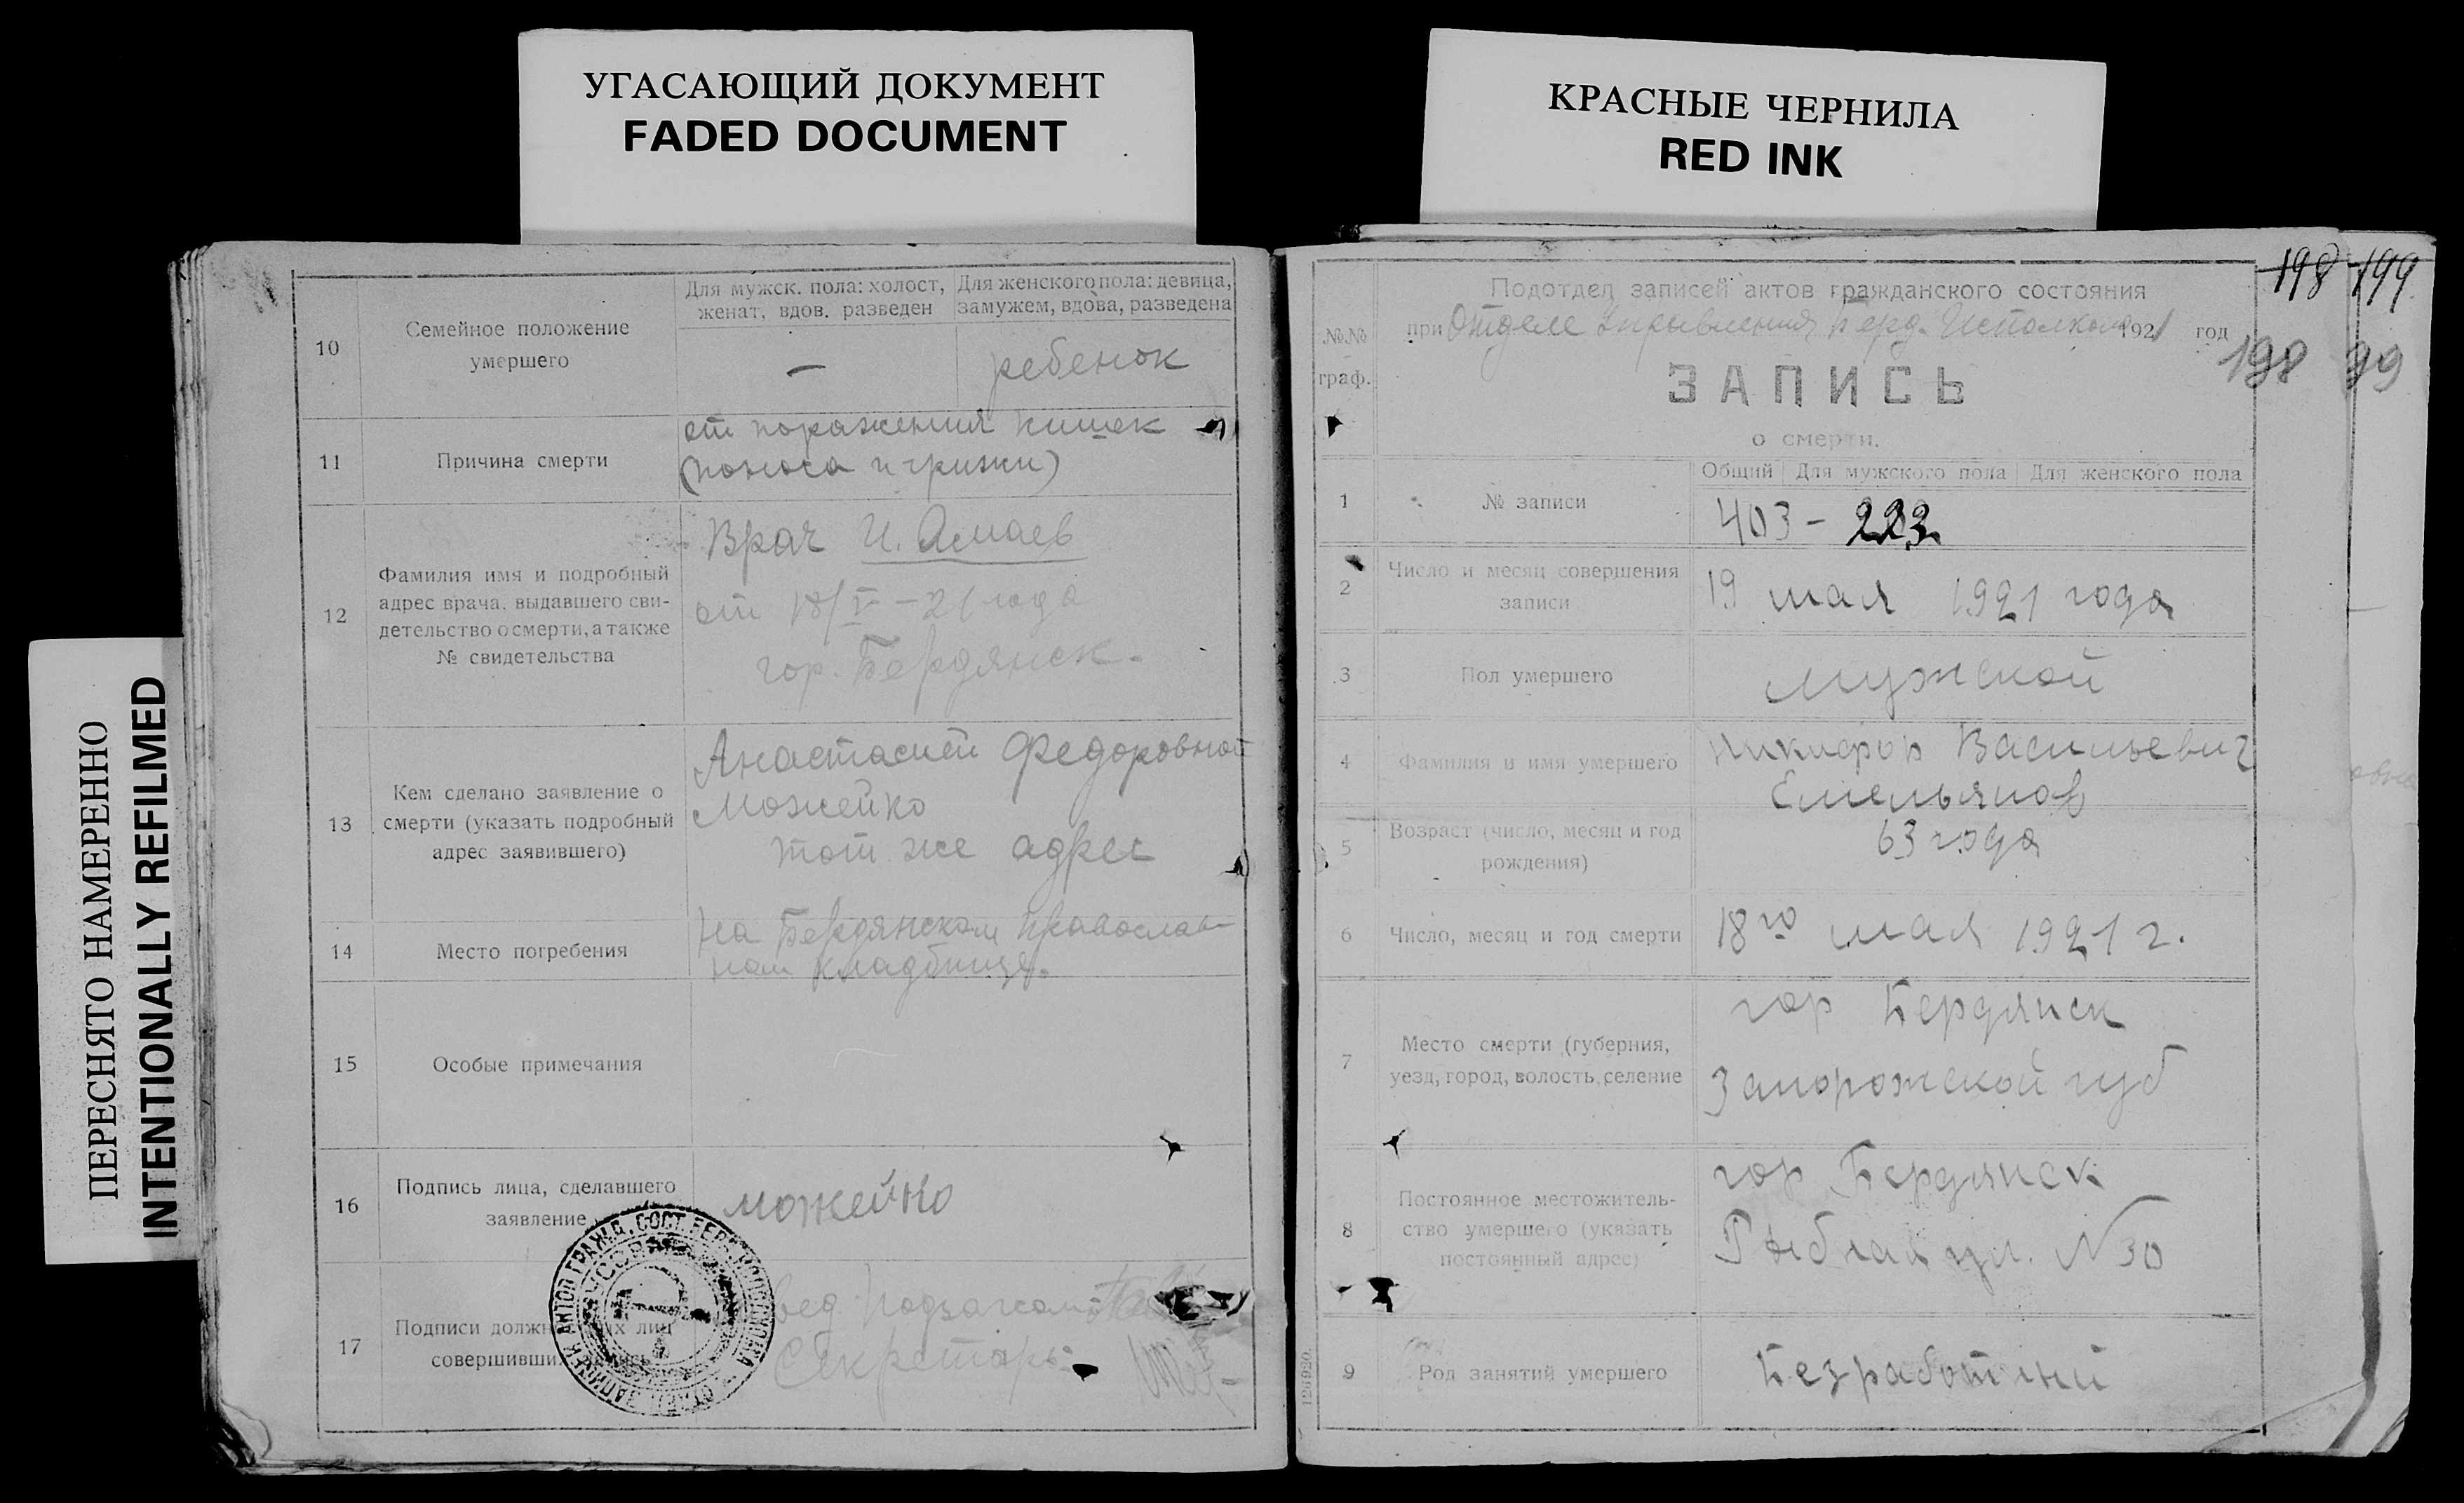 УГАСАЮЩИЙ ДОКУМЕНТ
FADED DOCUMENT
КРАСНЫЕ ЧЕРНИЛА
RED INK
ПЕРЕСНЯТО НАМЕРЕННО
INTENTIONALLY REFILMED
10
Семейное положение
умершего
Для мужск. пола: холост,
женат, вдов. разведен
Для женского пола: девица,
замужем, вдова, разведена
—
ребенок
11
Причина смерти
от поражения кишек
(поноса и грижи)
12
Фамилия имя и подробный
адрес врача, выдавшего сви-
детельство о смерти, а также
№ свидетельства
Врач И. Ямаев
от 18/V - 21 года
гор. Бердянск.
13
Кем сделано заявление о
смерти (указать подробный
адрес заявившего)
Анастасией Федоровной
Можейко
тот же адрес
14
Место погребения
на Бердянском православ-
ном кладбище.
15
Особые примечания
16
Подпись лица, сделавшего
заявление
можейко
17
Подписи должн
лиц
совершивших
Секретарь
198 199
198 99
№№
граф.
Подотдел записей актов гражданского состояния
при Отделе Управления Берд. Исполкома 1921 год
ЗАПИСЬ
о смерти.
1
№ записи
Общий Для мужского пола Для женского пола
403 - 223
2
Число и месяц совершения
записи
19 мая 1921 года
3
Пол умершего
мужской
4
Фамилия и имя умершего
Никифор Васильевич
Емельянов
5
Возраст (число, месяц и год
рождения)
63 года
6
Число, месяц и год смерти
18го мая 1921 г.
7
Место смерти (губерния,
уезд, город, волость, селение
гор Бердянск
Запорожской губ
8
Постоянное местожитель-
ство умершего (указать
постоянный адрес)
гор Бердянск
Рыбная ул. N 30
9
Род занятий умершего
Безработный